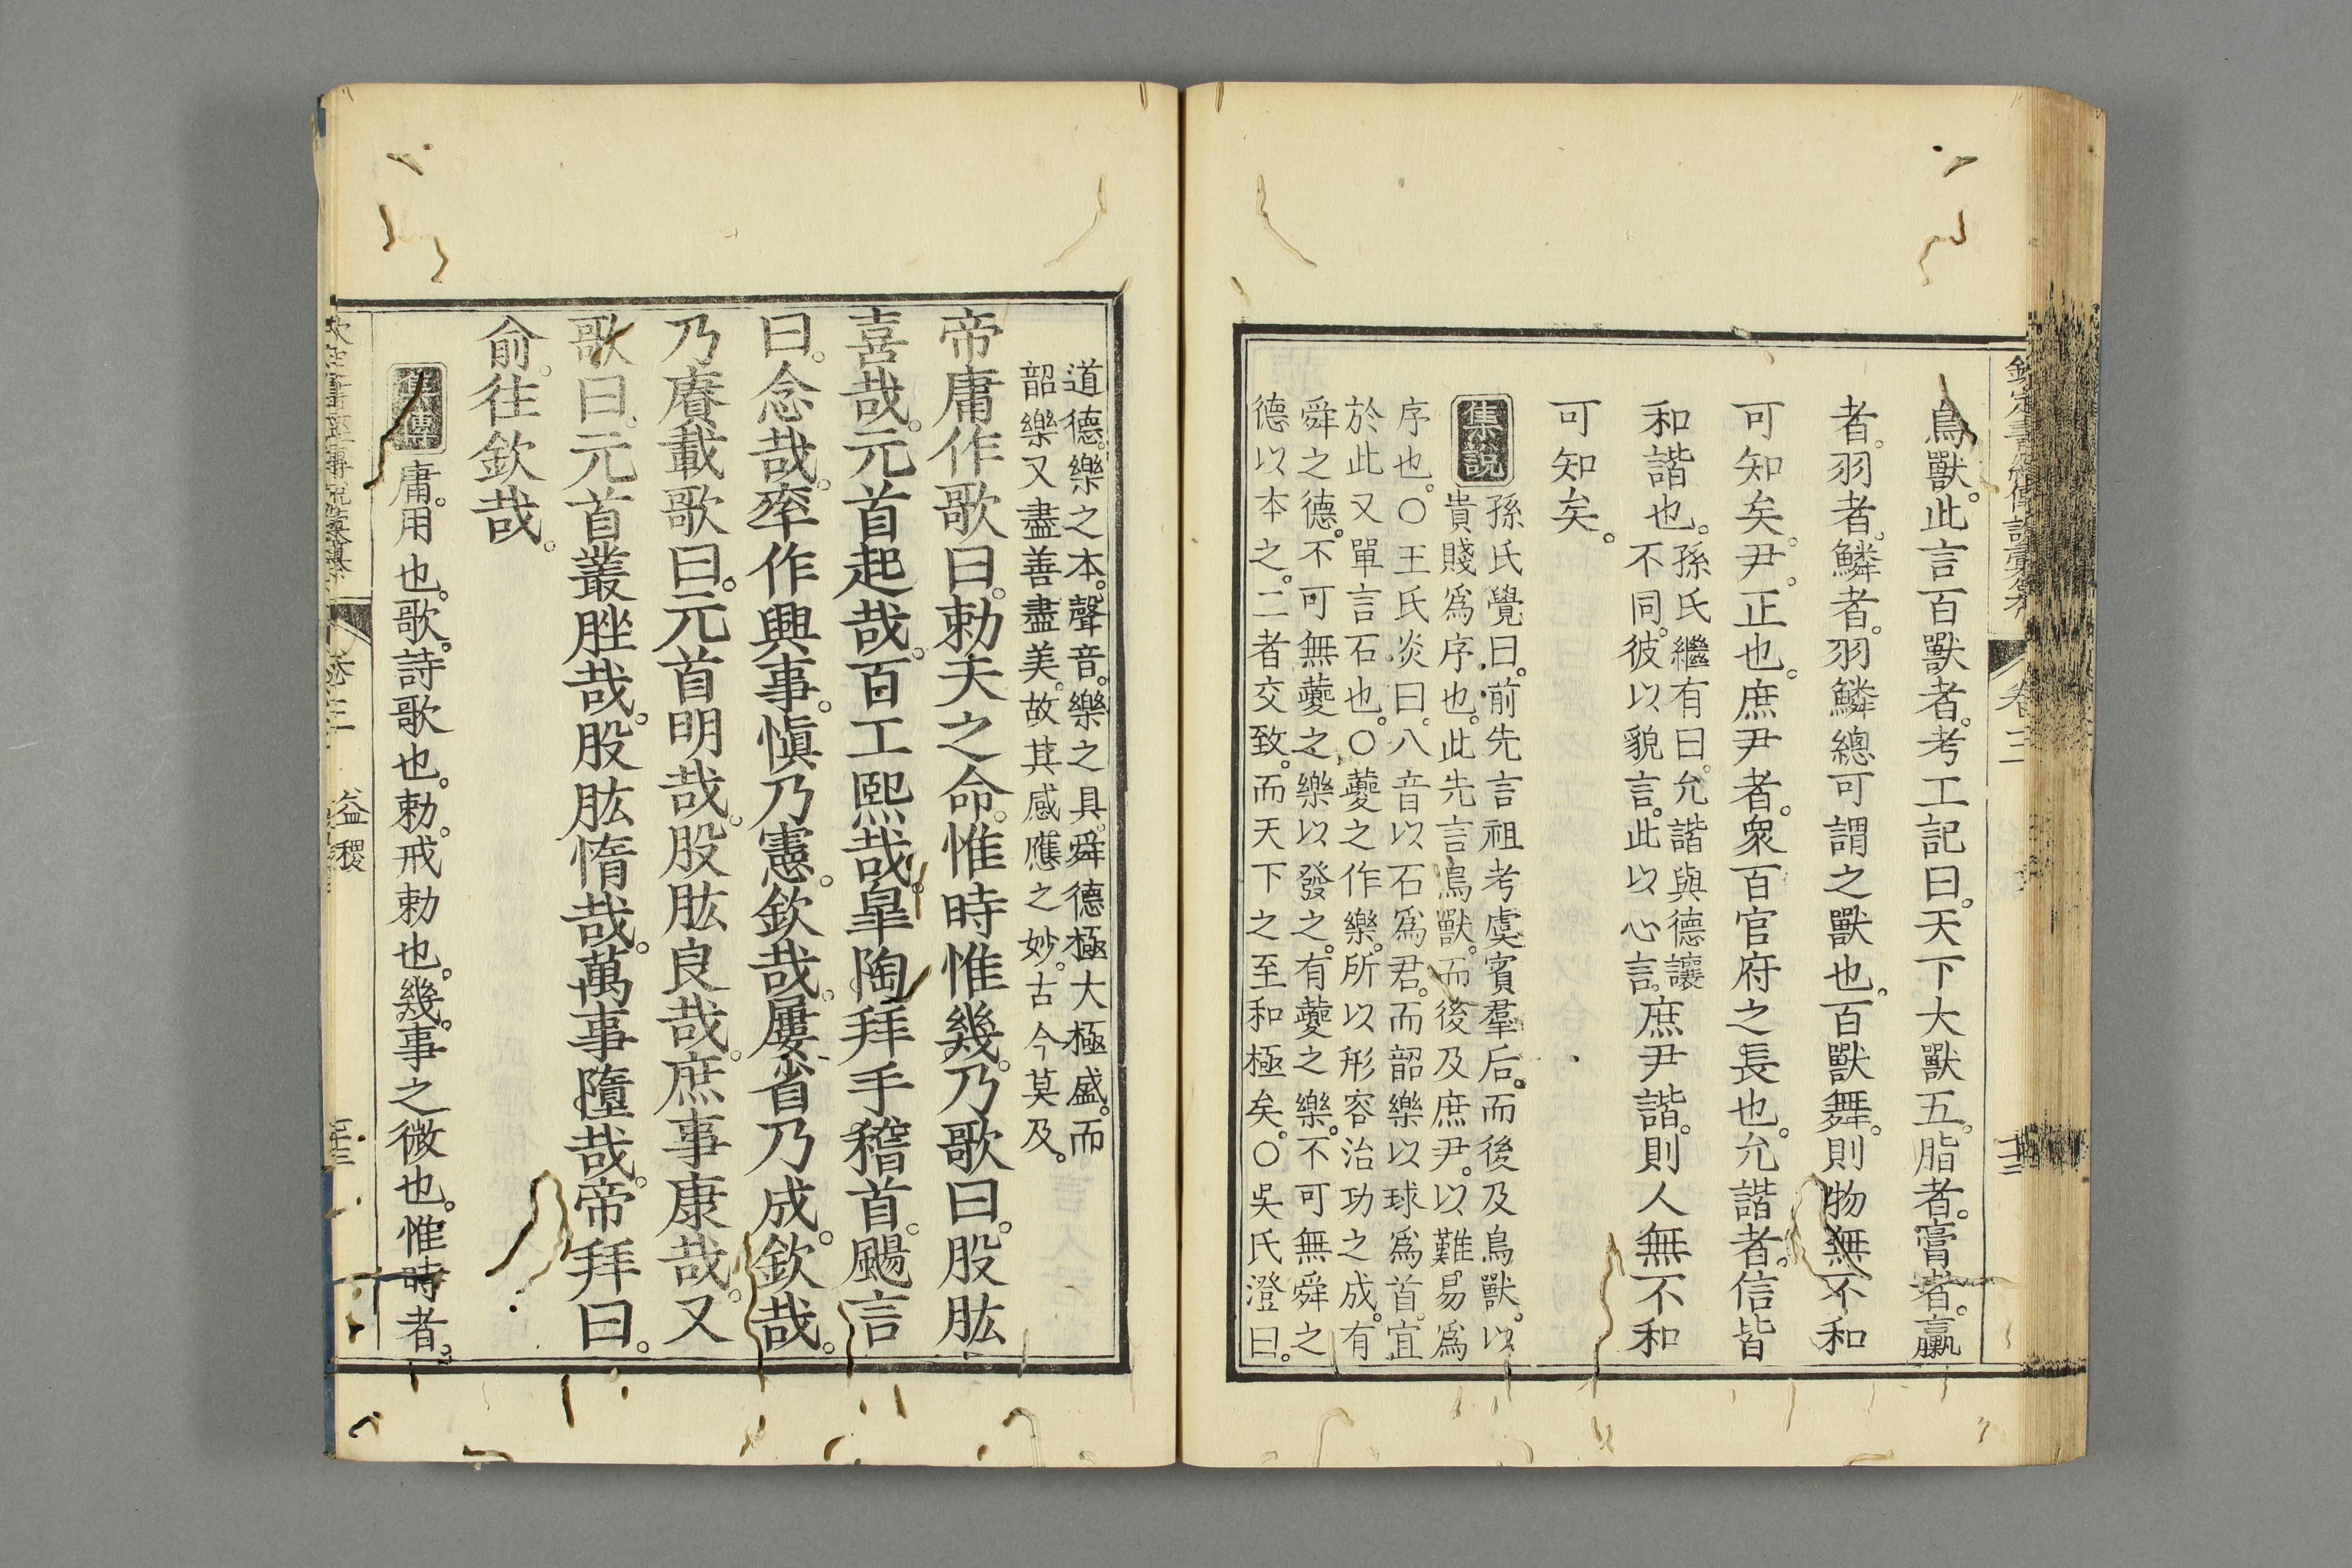 鳥獸。此言百獸者。考工記曰。天下大獸五。脂者。膏者。臝
者。羽者。鱗者。羽鱗總可謂之獸也。百獸舞。則物無不和
可知矣。尹。正也。庶尹者。衆百官府之長也。允諧者。信皆
和諧也。孫氏繼有曰。允諧與德讓
不同。彼以貌言。此以心言。庶尹諧。則人無不和
可知矣。
集說
孫氏覺曰。前先言祖考虞賓羣后。而後及鳥獸。以
貴賤爲序也。此先言鳥獸。而後及庶尹。以難易爲
序也。○王氏炎曰。八音以石爲君。而韶樂以球爲首。宜
於此又單言石也。○夔之作樂。所以形容治功之成。有
舜之德。不可無夔之樂以發之。有夔之樂。不可無舜之
德以本之。二者交致。而天下之至和極矣。○吳氏澄曰。
卷三
道德。樂之本。聲音。樂之具。舜德極大極盛。而
韶樂又盡善盡美。故其感應之妙。古今莫及。
帝庸作歌曰。勅天之命。惟時惟幾。乃歌曰。股肱
喜哉。元首起哉。百工熙哉。皐陶拜手稽首。颺言
曰。念哉。率作興事。愼乃憲。欽哉。屢省乃成。欽哉。
乃賡載歌曰。元首明哉。股肱良哉。庶事康哉。又
歌曰。元首叢脞哉。股肱惰哉。萬事墮哉。帝拜曰。
俞。往欽哉。
集傳
庸。用也。歌。詩歌也。勅。戒勅也。幾。事之微也。惟時者。
益稷